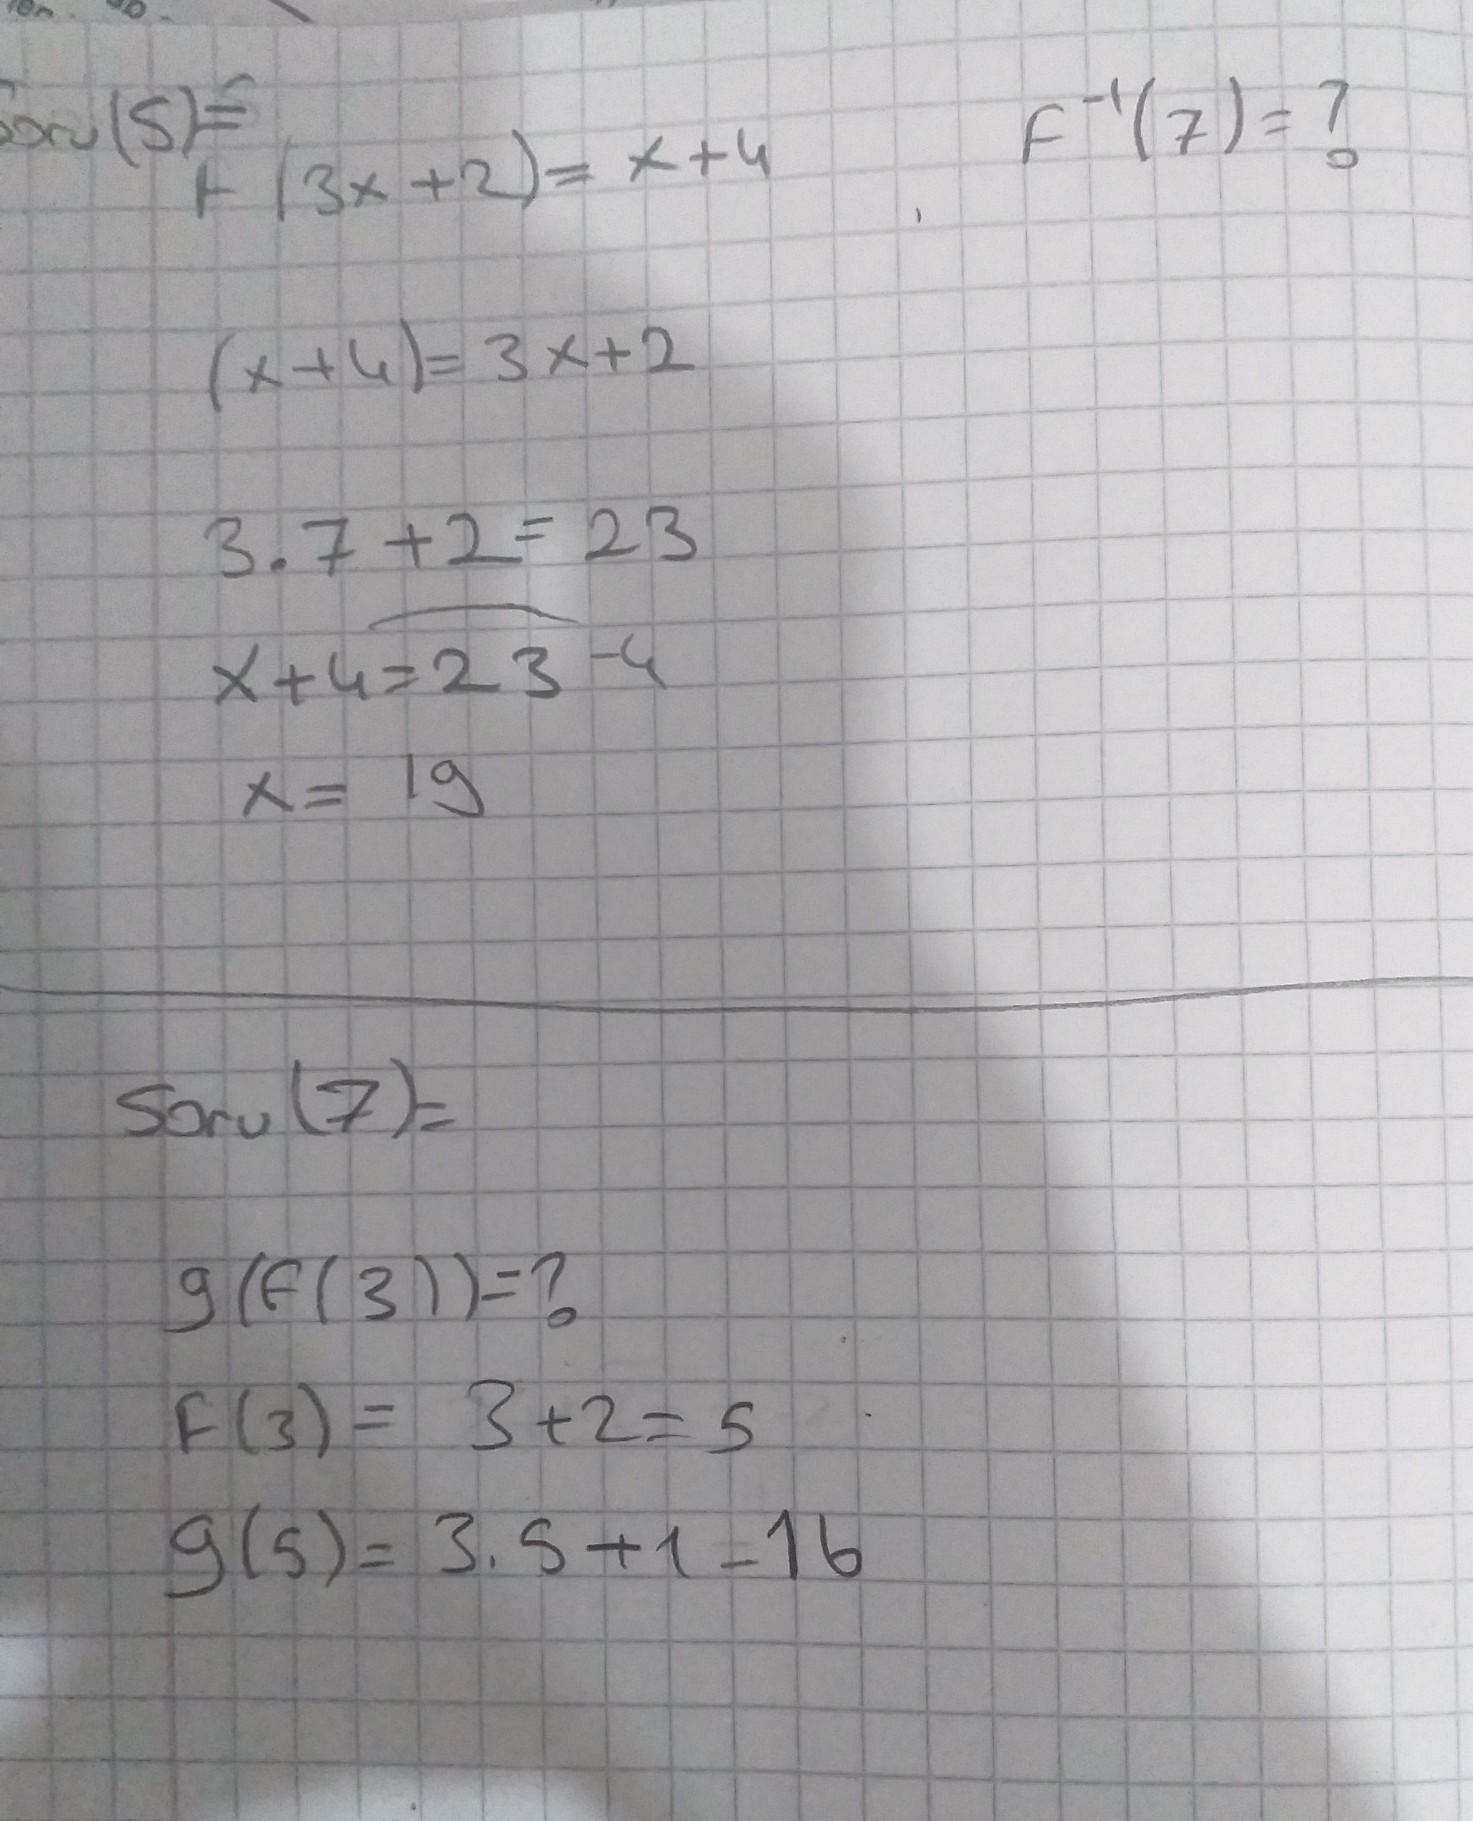 Soru(5)=
F(3x+2)=x+4 F⁻¹(7)=?
(x+4)=3x+2
3.7+2=23
x+4=23-4
x=19
Soru(7)=
g(F(3))=?
F(3)=3+2=5
g(5)=3.5+1=16